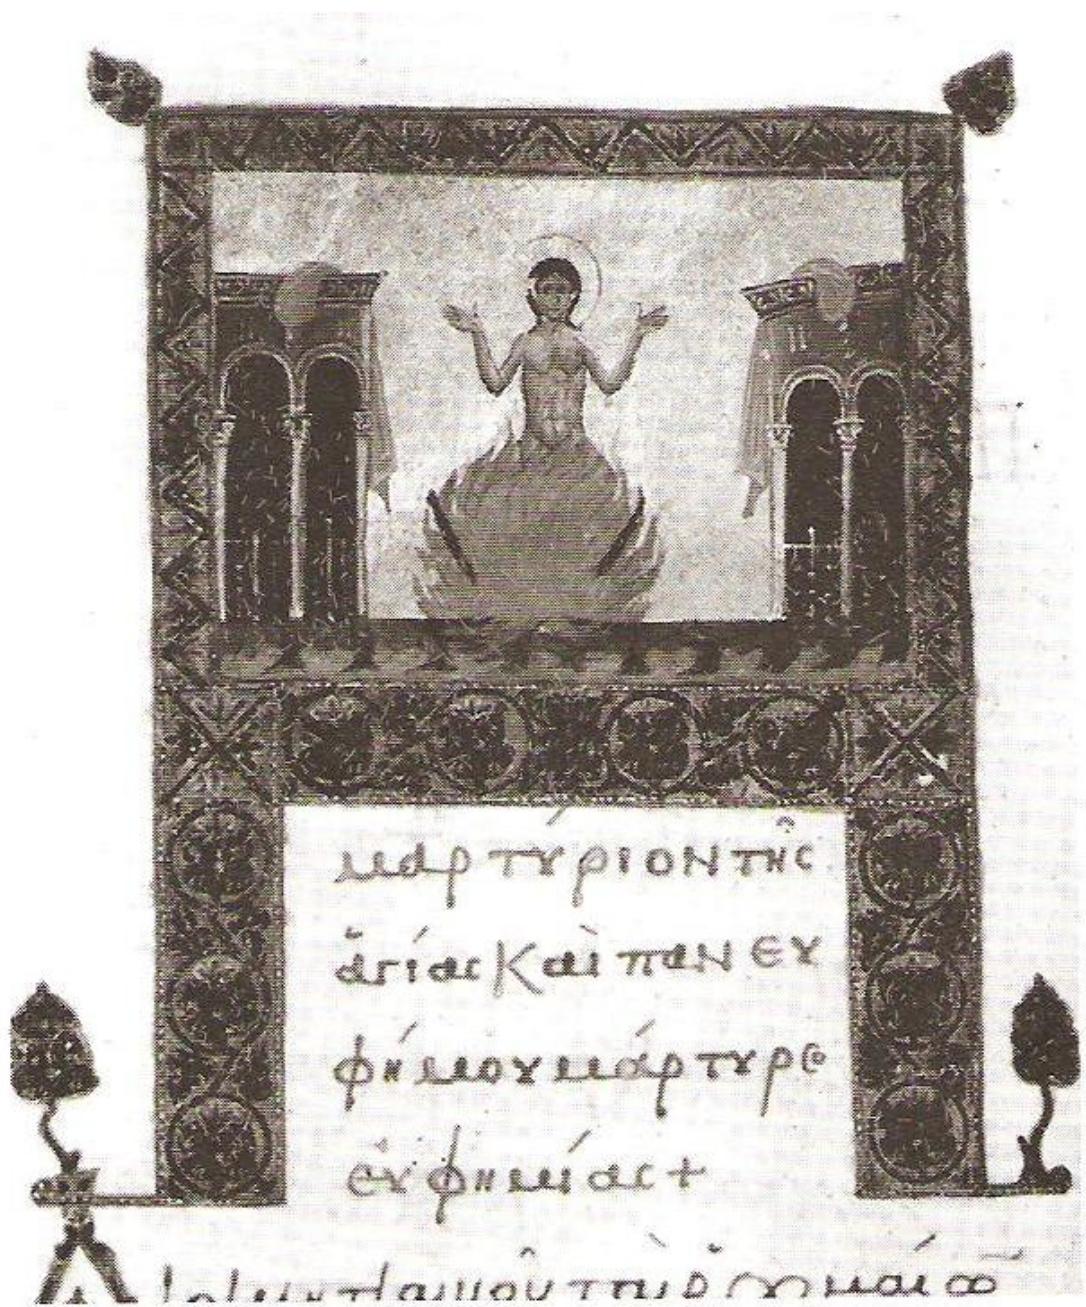 μαρτύριον τῆς
ἁγίας καὶ πανευ
φήμου μάρτυρο
εὐφημίας +